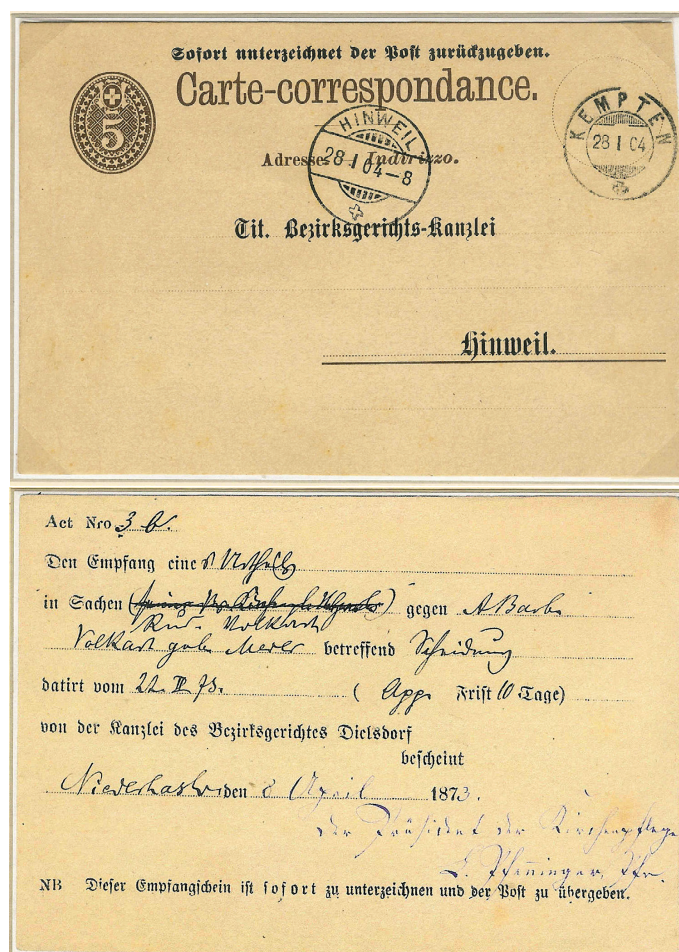 Sofort unterzeichnet der Post zurückzugeben.
Carte-correspondance.
5
HINWEIL
28 I 04-8
KEMPTEN
28 I 04
Adresse. Indirizzo.
Tit. Bezirksgerichts-Kanzlei
Hinweil.
Act Nro 3 b.
Den Empfang eines Urtheils
in Sachen gegen A Barb.
Rud. Volkart
Volkart geb. betreffend Scheidung
datirt vom 22. 73. (App. Frist 10 Tage)
von der Kanzlei des Bezirksgerichtes Dielsdorf
bescheint
Niederhasli den 8 April 1873.
Der Präsident der Kirchenpflege
Pfenninger, Pfr.
NB Dieser Empfangschein ist sofort zu unterzeichnen und der Post zu übergeben.